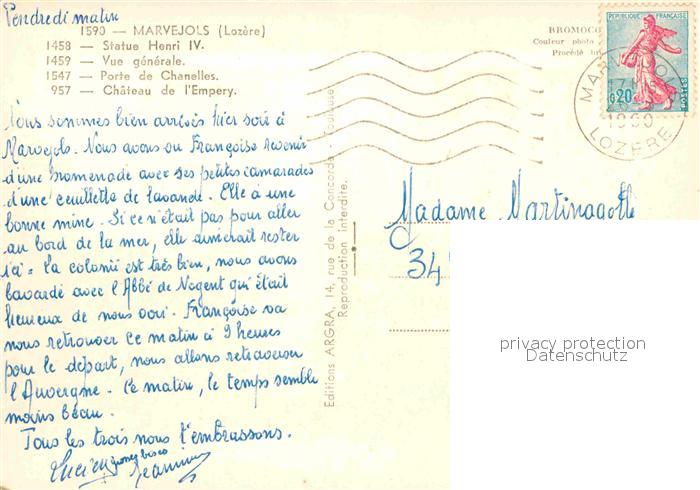 Vendredi matin
1590 — MARVEJOLS (Lozère)
1458 — Statue Henri IV.
1459 — Vue générale.
1547 — Porte de Chanelles.
957 — Château de l'Empery.
Nous sommes bien arrivés hier soir à
Marvejols. Nous avons vu Françoise revenir
d'une promenade avec ses petites camarades
d'une cueillette de lavande. Elle a une
bonne mine. Si ce n'était pas pour aller
au bord de la mer, elle aimerait rester
ici. La colonie est très bien, nous avons
bavardé avec l'Abbé de Nogent qui était
heureux de nous voir. Françoise va
nous retrouver ce matin à 9 heures
pour le départ, nous allons retraverser
l'Auvergne. Ce matin, le temps semble
moins beau.
Tous les trois nous t'embrassons.
Lucien
Jeannine
Editions ARGRA, 14, rue de la Concorde - Toulouse
Reproduction interdite.
BROMOCO
Couleur photo
Procédé
REPUBLIQUE FRANÇAISE
0,20
POSTES
MARVEJOLS
17H
1960
LOZERE
Madame Martinagolle
34
privacy protection
Datenschutz